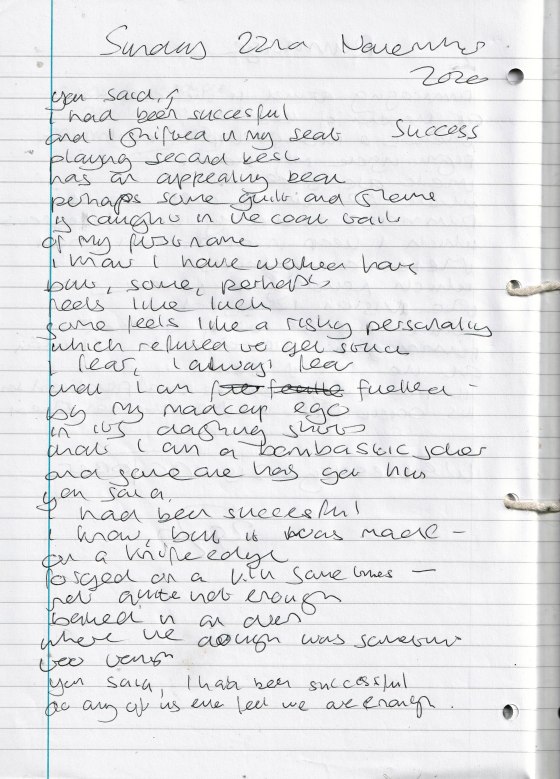 Sunday 22nd November
2020
you said,
I had been succesful
and I shifted in my seat Success
playing second best
has an appealing beat
perhaps some guilt and shame
is caught in the coat tails
of my first name
I know I have worked hard
but, some, perhaps,
feels like luck
some feels like a risky personality
which refused to get stuck
I fear, I always fear
that I am fuelled -
by my madcap ego
in its dashing shoes
that I am a bombastic joker
and someone has got his
you said,
I had been successful
I know, but it was made -
on a knife edge
forged on a kiln sometimes -
not quite hot enough
baked in an oven
where the dough was sometimes
too tough
you said, I had been successful
do any of us ever feel we are enough.